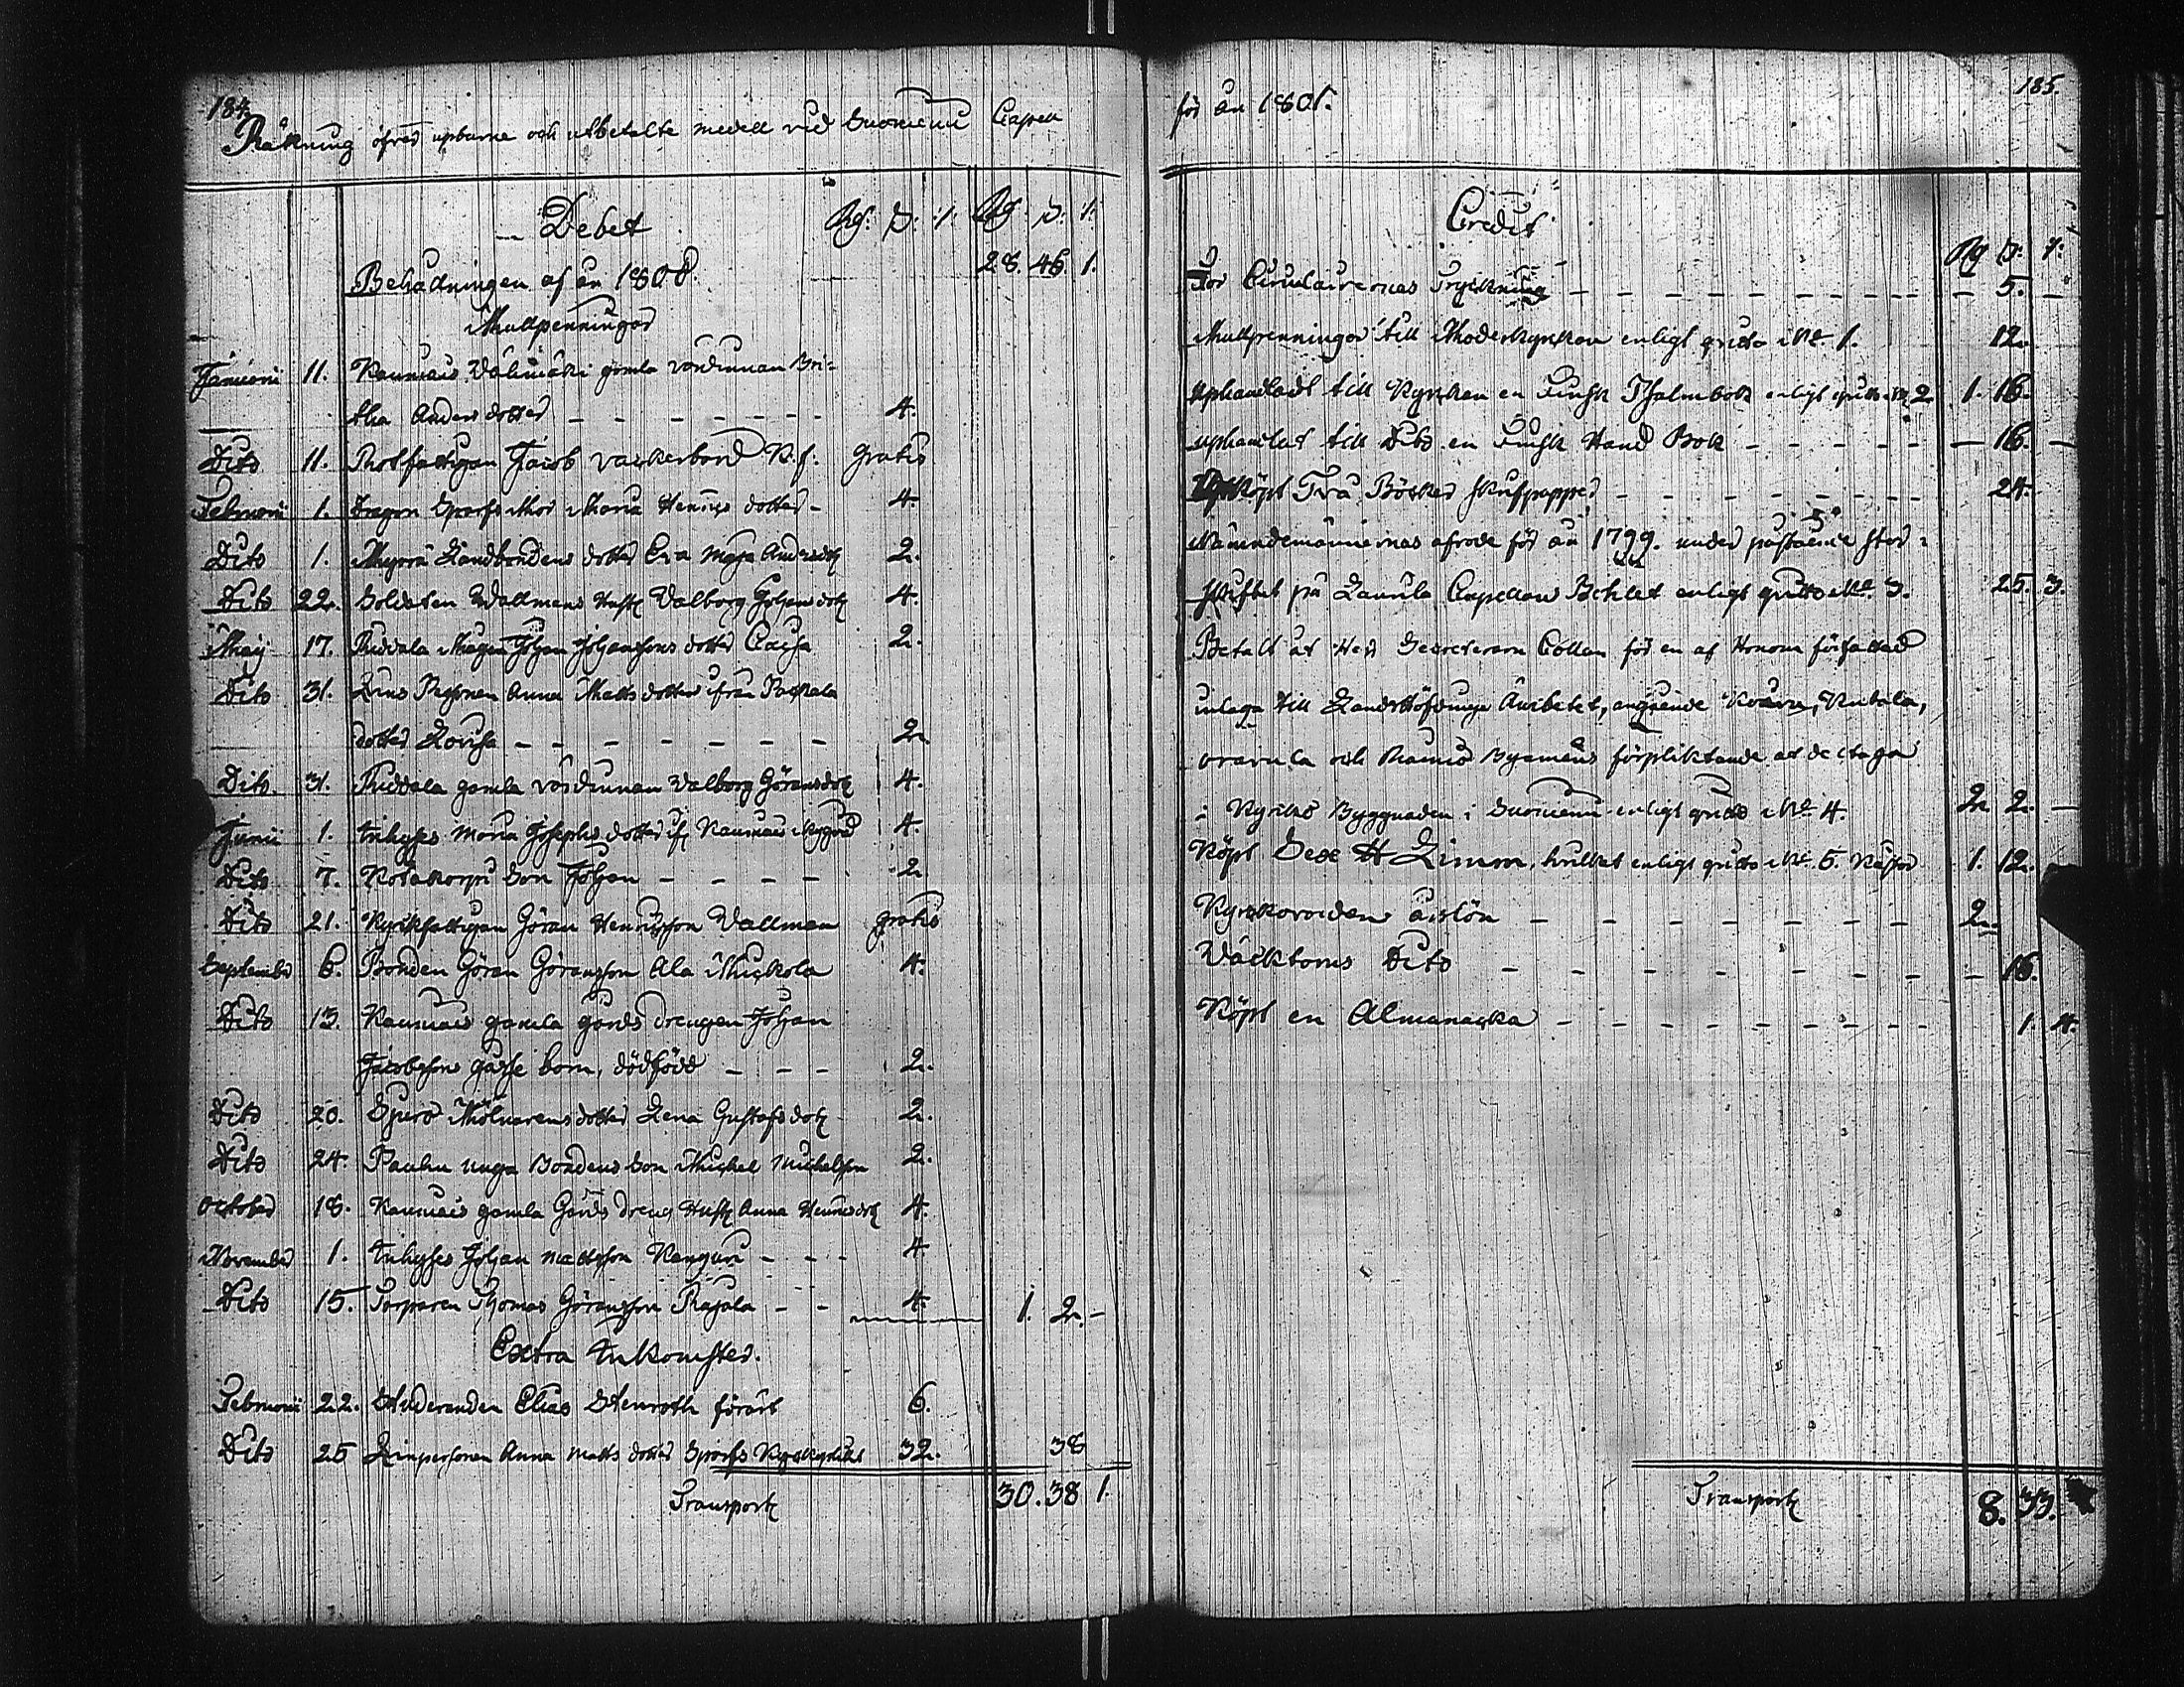 184.
Räkning öfver upburne och utbetalte medell vid Suoniemi Capell
Debet
Rd. s. r. Rd. s. r.
Behådningen af år 1800. 28. 46. 1.
Mullpenningar
Januari 11. Kauniais Välimäki gamla värdinnan Bri-
tha Anders dotter 4.
Dito 11. Rotfattigan Jacob Gratis
Februari 1. Dragon Sparfs Mor Maria Henrics dotter 4.
Dito 1. Myyrä Landbondens dotter Eva Maja Andersdotr 2.
Dito 22. Soldaten Wallmans Hustr Valborg Johansdotr 4.
Maij 17. Johan Johanssons dotter Caisa 2.
Dito 31. Anna Matts dotter ifrån
dotter Lovisa 2.
Dito 31. gamla värdinnan Valborg Göransdotr 4.
Junii 1. Inhyses Maria Josephs dotter if Kauniais 4.
Dito 7. Kotakorpi Son Johan 2.
Dito 21. Kyrkfattigan Göran Henricsson Vallman gratis
September 6. Bonden Göran Göransson Ala 4.
Dito 13. Kauniais gamla gårds drengen Johan
Jacobssons gosse barn, dödfödd 2.
Dito 20. Mölnarens dotter Lena Gustafs dotr 2.
Dito 24. Paulu unga Bondens Son Michel Michelsson 2.
October 18. Kauniais gamla Gårds dreng Hustr Anna Henricsdotr 4.
November 1. Inhyses Johan Mattsson 4.
Dito 15. Torparen Thomas Göransson Rajala 4. 1. 2. -
Extra Inkomster.
Februari 22. Studeranden Elias Stenroth förärt 6.
Dito 25 Anna Matts dotter Sparfs 32. 38
Transport 30. 38 1.
185.
för år 1801.
Credit
Rd s. r.
För Circulairernas Tryckning - 5. -
Mullpenningar till Moderkyrkan enligt quitto No 1. 12.
Uphandladt till Kyrkan en Finsk Psalmbok enligt quitto No 2 1. 16.
uphandlat till Dito en Finsk Hand Bok - 16. -
Upköpt Två Böcker skrifpapper 24.
Nämndemännernas arvode för år 1799. under påstående stor-
skiftet på Laurila Capellans Bohlet enligt quitto No 3. 25. 3.
Betalt åt Herr Secreteraren Collan för en af Honom författad
inlaga till Landshöfdinge Ämbetet, angående Kuivu, Kutala,
och Byamäns förpliktande at deltaga
i Kyrko Byggnaden i Suoniemi enligt quitto No 4. 2. 2. -
Köpt Sex Linnor, hvilket enligt quitto No 5. 1. 12.
Kyrkovärdens årslön 2.
Väcktarens Dito - 16.
Köpt en Almanacka 1. 4.
Transport 8. 33.